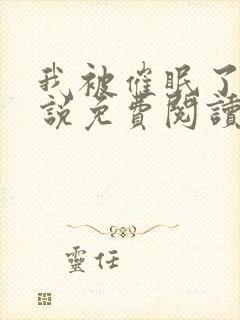 我被催眠了
說免費閱讀
靈任